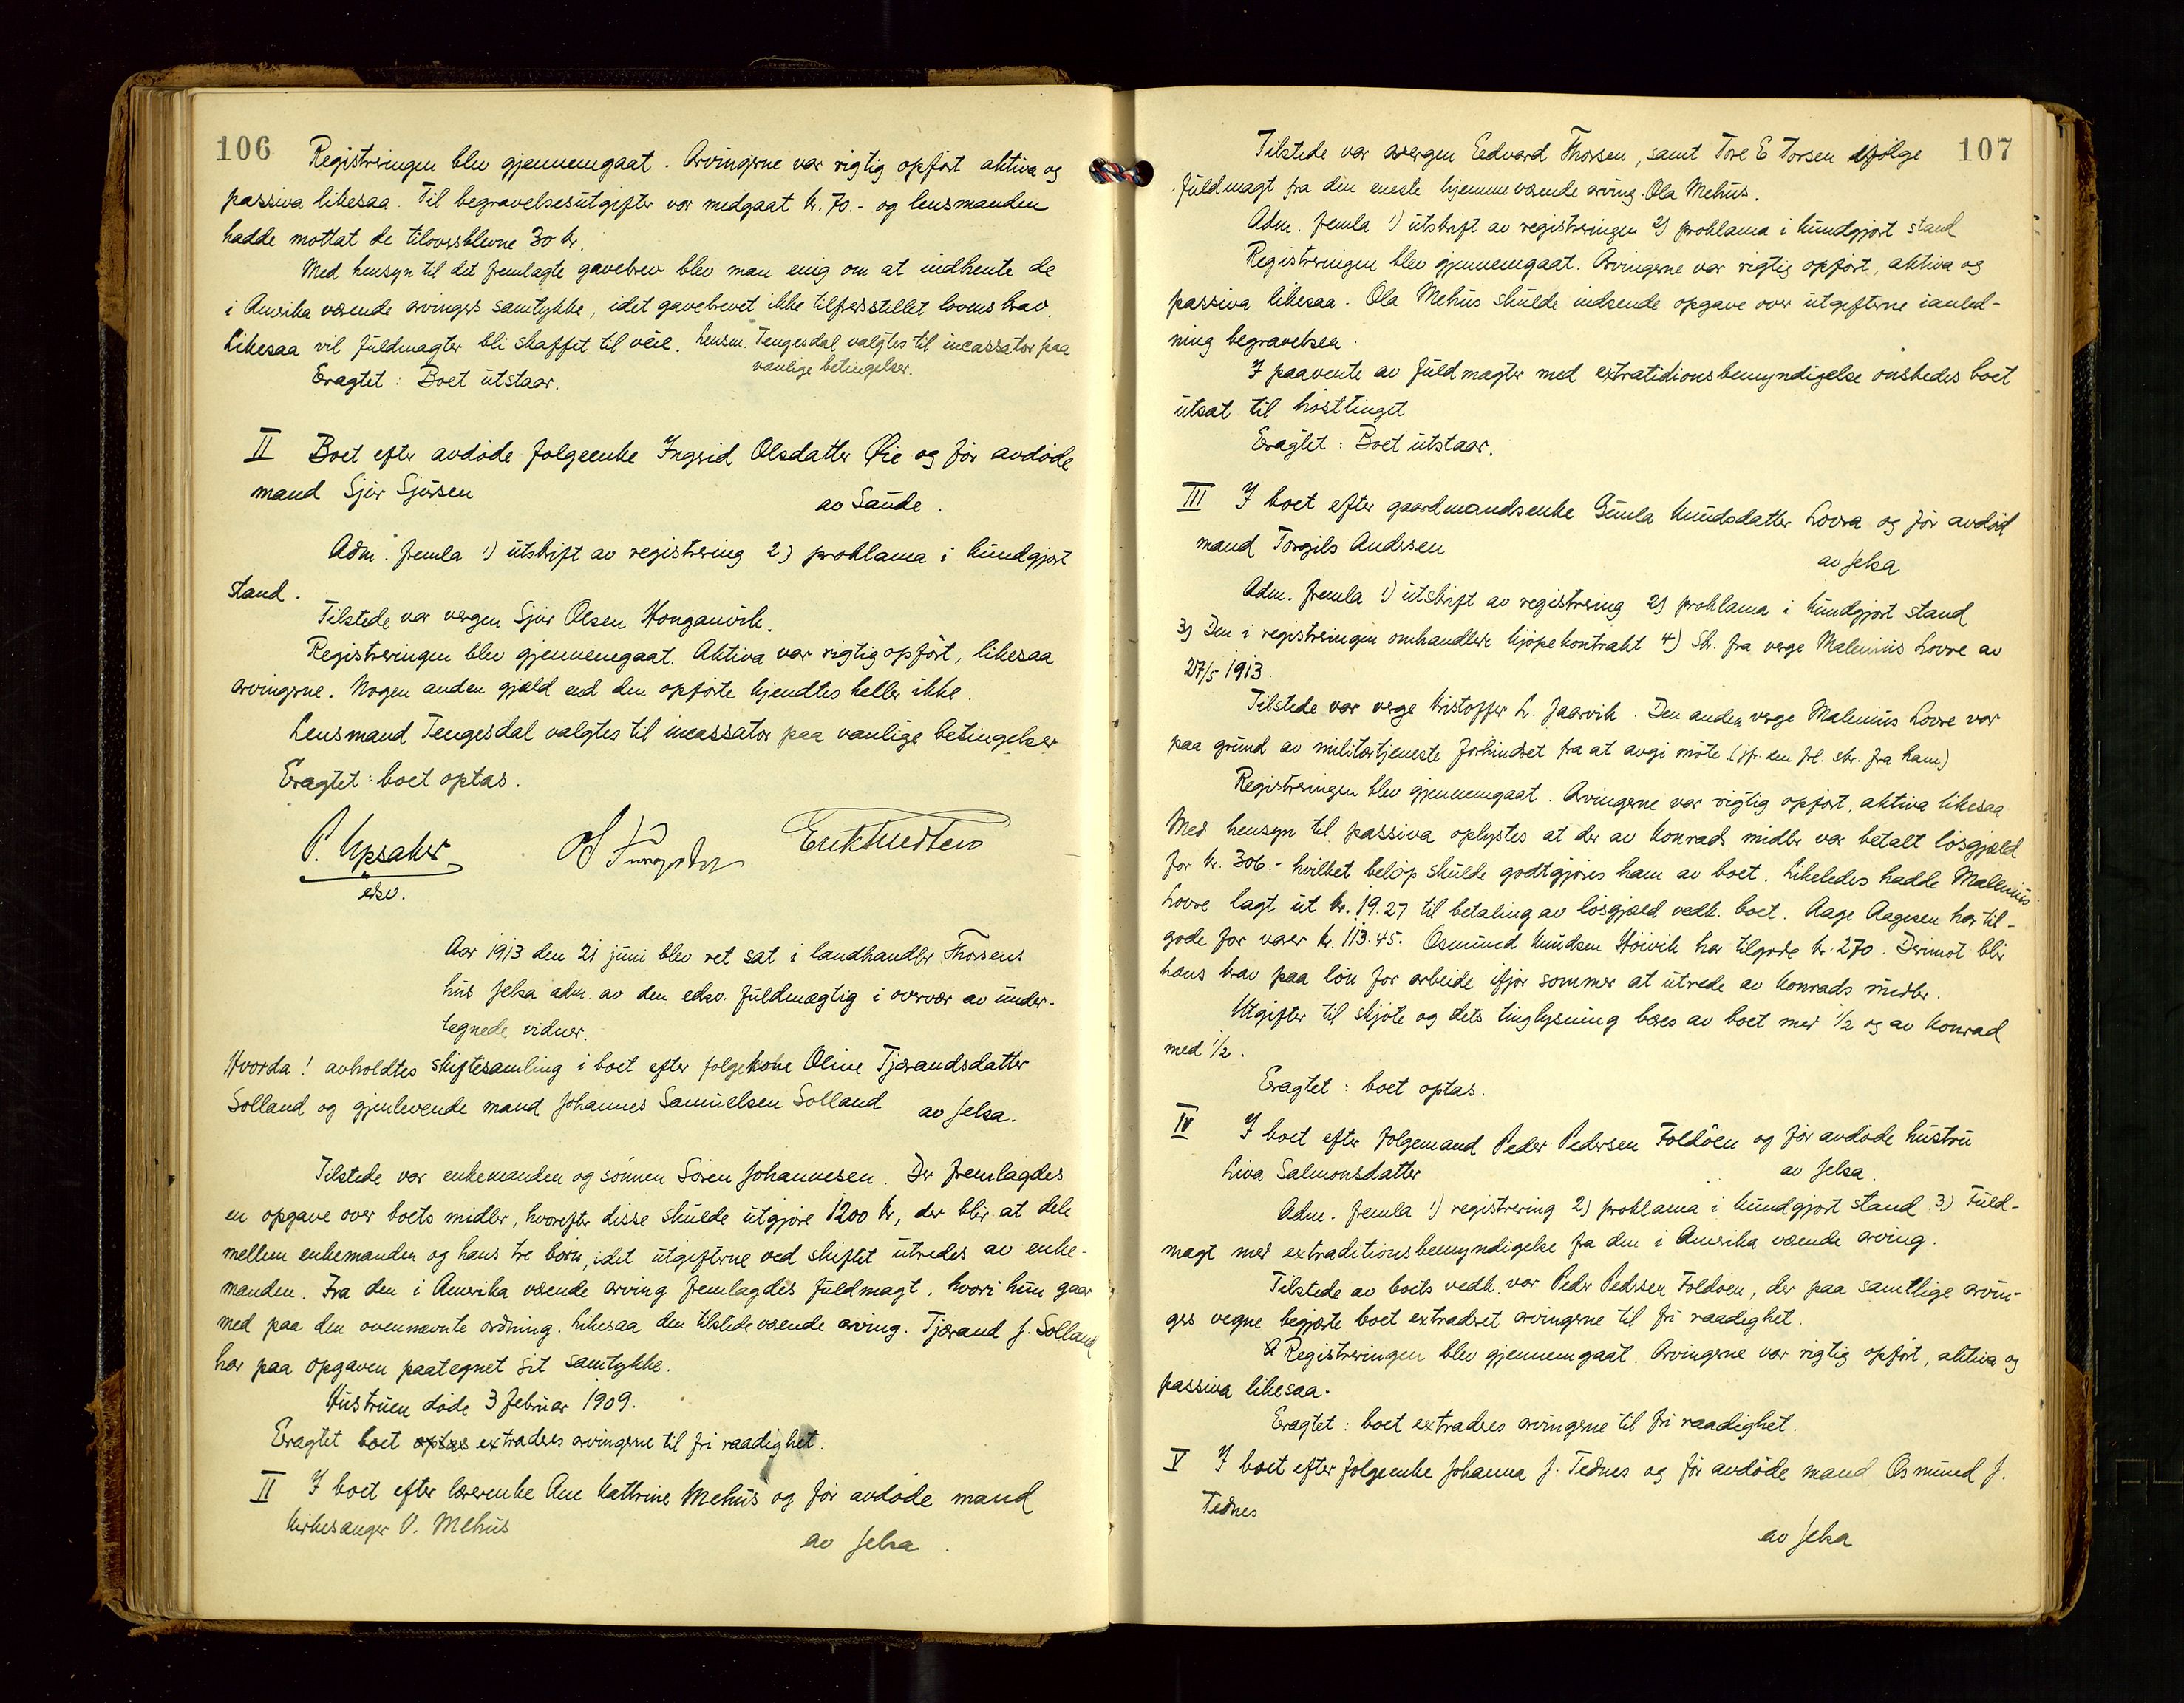 106
Registreringen blev gjennemgaat. Arvingerne var rigtig opført aktiva og
passiva likesaa. Til begravelsesutgifter var medgaat kr. 70.- og lensmanden
hadde mottat de tiloversblevne 30 kr.
Med hensyn til det fremlagte gavebrev blev man enig om at indhente de
i Amerika værende arvingers samtykke, idet gavebrevet ikke tilfredsstillet lovens krav.
Likesaa vil fuldmagter bli skaffet til veie. Lensm. Tengesdal valgtes til incassator paa
vanlige betingelser.
Eragtet: Boet utstaar.
II Boet efter avdøde folgeenke Ingrid Olsdatter Øie og før avdøde
mand Sjur Sjursen
av Saude.
Adm. fremla 1) utskrift av registrering 2) proklama i kundgjort
stand.
Tilstede var vergen Sjur Olsen Honganvik.
Registreringen blev gjennemgaat. Aktiva var rigtig opført, likesaa
arvingerne. Nogen anden gjæld end den opførte kjendtes heller ikke.
Lensmand Tengesdal valgtes til incassator paa vanlige betingelser
Eragtet: boet optas.
P. Upsaker
edsv.
Aar 1913 den 21 juni blev ret sat i landhandler Thorsens
hus Jelsa adm. av den edsv. fuldmægtig i overvær av under-
tegnede vidner.
Hvorda! avholdtes skiftesamling i boet efter folgekone Oline Tjærandsdatter
Solland og gjenlevende mand Johannes Samuelsen Solland av Jelsa.
Tilstede var enkemanden og sønnen Søren Johannesen. Der fremlagdes
en opgave over boets midler, hvorefter disse skulde utgjøre 1200 kr, der blir at dele
mellem enkemanden og hans tre børn, idet utgifterne ved skiftet utredes av enke-
manden. Fra den i Amerika værende arving fremlagdes fuldmagt, hvori hun gaar
med paa den ovennævnte ordning. Likesaa den tilstedeværende arving. Tjærand J. Solland
har paa opgaven paategnet sit samtykke.
Hustruen døde 3 februar 1909.
Eragtet boet optas extraderes arvingerne til fri raadighet.
II I boet efter lærerenke Ane Kathrine Mehus og før avdøde mand
Kirkesanger O. Mehus
av Jelsa.
107
Tilstede var vergen Eedvard Thorsen, samt Tore E Torsen ifølge
fuldmagt fra den eneste hjemmeværende arving Ola Mehus.
Adm. fremla 1) utskrift av registreringen 2) proklama i kundgjort stand
Registreringen blev gjennemgaat. Arvingerne var rigtig opført, aktiva og
passiva likesaa. Ola Mehus skulde indsende opgave over utgifterne ianled-
ning begravelsen.
I paavente av fuldmagter med extratidionsbemyndigelse ønskedes boet
utsat til høsttinget
Eragtet: Boet utstaar.
III I boet efter gaardmandsenke Gunla Knudsdatter Lovra og før avdød
mand Torgils Anderssen
av Jelsa
Adm. fremla 1) utskrift av registrering 2) proklama i kundgjort stand
3) Den i registreringen omhandlede kjøpekontrakt 4) Skr. fra verge Malenius Lovre av
27/5 1913.
Tilstede var verge Kristoffer L. Jaarvik. Den anden verge Malenius Lovre var
paa grund av militærtjeneste forhindret fra at avgi møte. (jfr. en frl. skr. fra ham)
Registreringen blev gjennemgaat. Arvingerne var rigtig opført, aktiva likesaa
Med hensyn til passiva oplystes at der av Konrads midler var betalt løsgjæld
for kr. 306.- hvilket beløp skulde godtgjøres ham av boet. Likeledes hadde Malenius
Lovre lagt ut kr. 19.27 til betaling av løsgjæld vedk. boet. Aage Aagesen har til-
gode for varer kr. 113.45. Osmund Knudsen Høivik har tilgode kr. 270. Derimot blir
hans krav paa løn for arbeide ifjor sommer at utrede av Konrads midler.
Utgifter til skjøte og dets tinglysning bæres av boet med 1/2 og av Konrad
med 1/2.
Eragtet: boet optas.
IV I boet efter folgemand Peder Pedersen Foldøen og før avdøde hustru
Liva Salmonsdatter
av Jelsa.
Adm. fremla 1) registrering 2) proklama i kundgjort stand 3) Fuld-
magt med extraditionsbemyndigelse fra den i Amerika værende arving.
Tilstede av boets vedk. var Peder Pederssen Foldøen, der paa samtlige arvin-
gers vegne begjærte boet extraderet arvingerne til fri raadighet.
Registreringen blev gjennemgaat. Arvingerne var rigtig opført, aktiva og
passiva likesaa.
Eragtet: boet extraderes arvingerne til fri raadighet.
V I boet efter folgeenke Johanna J. Tednes og før avdøde mand Osmund J.
Tednes
av Jelsa